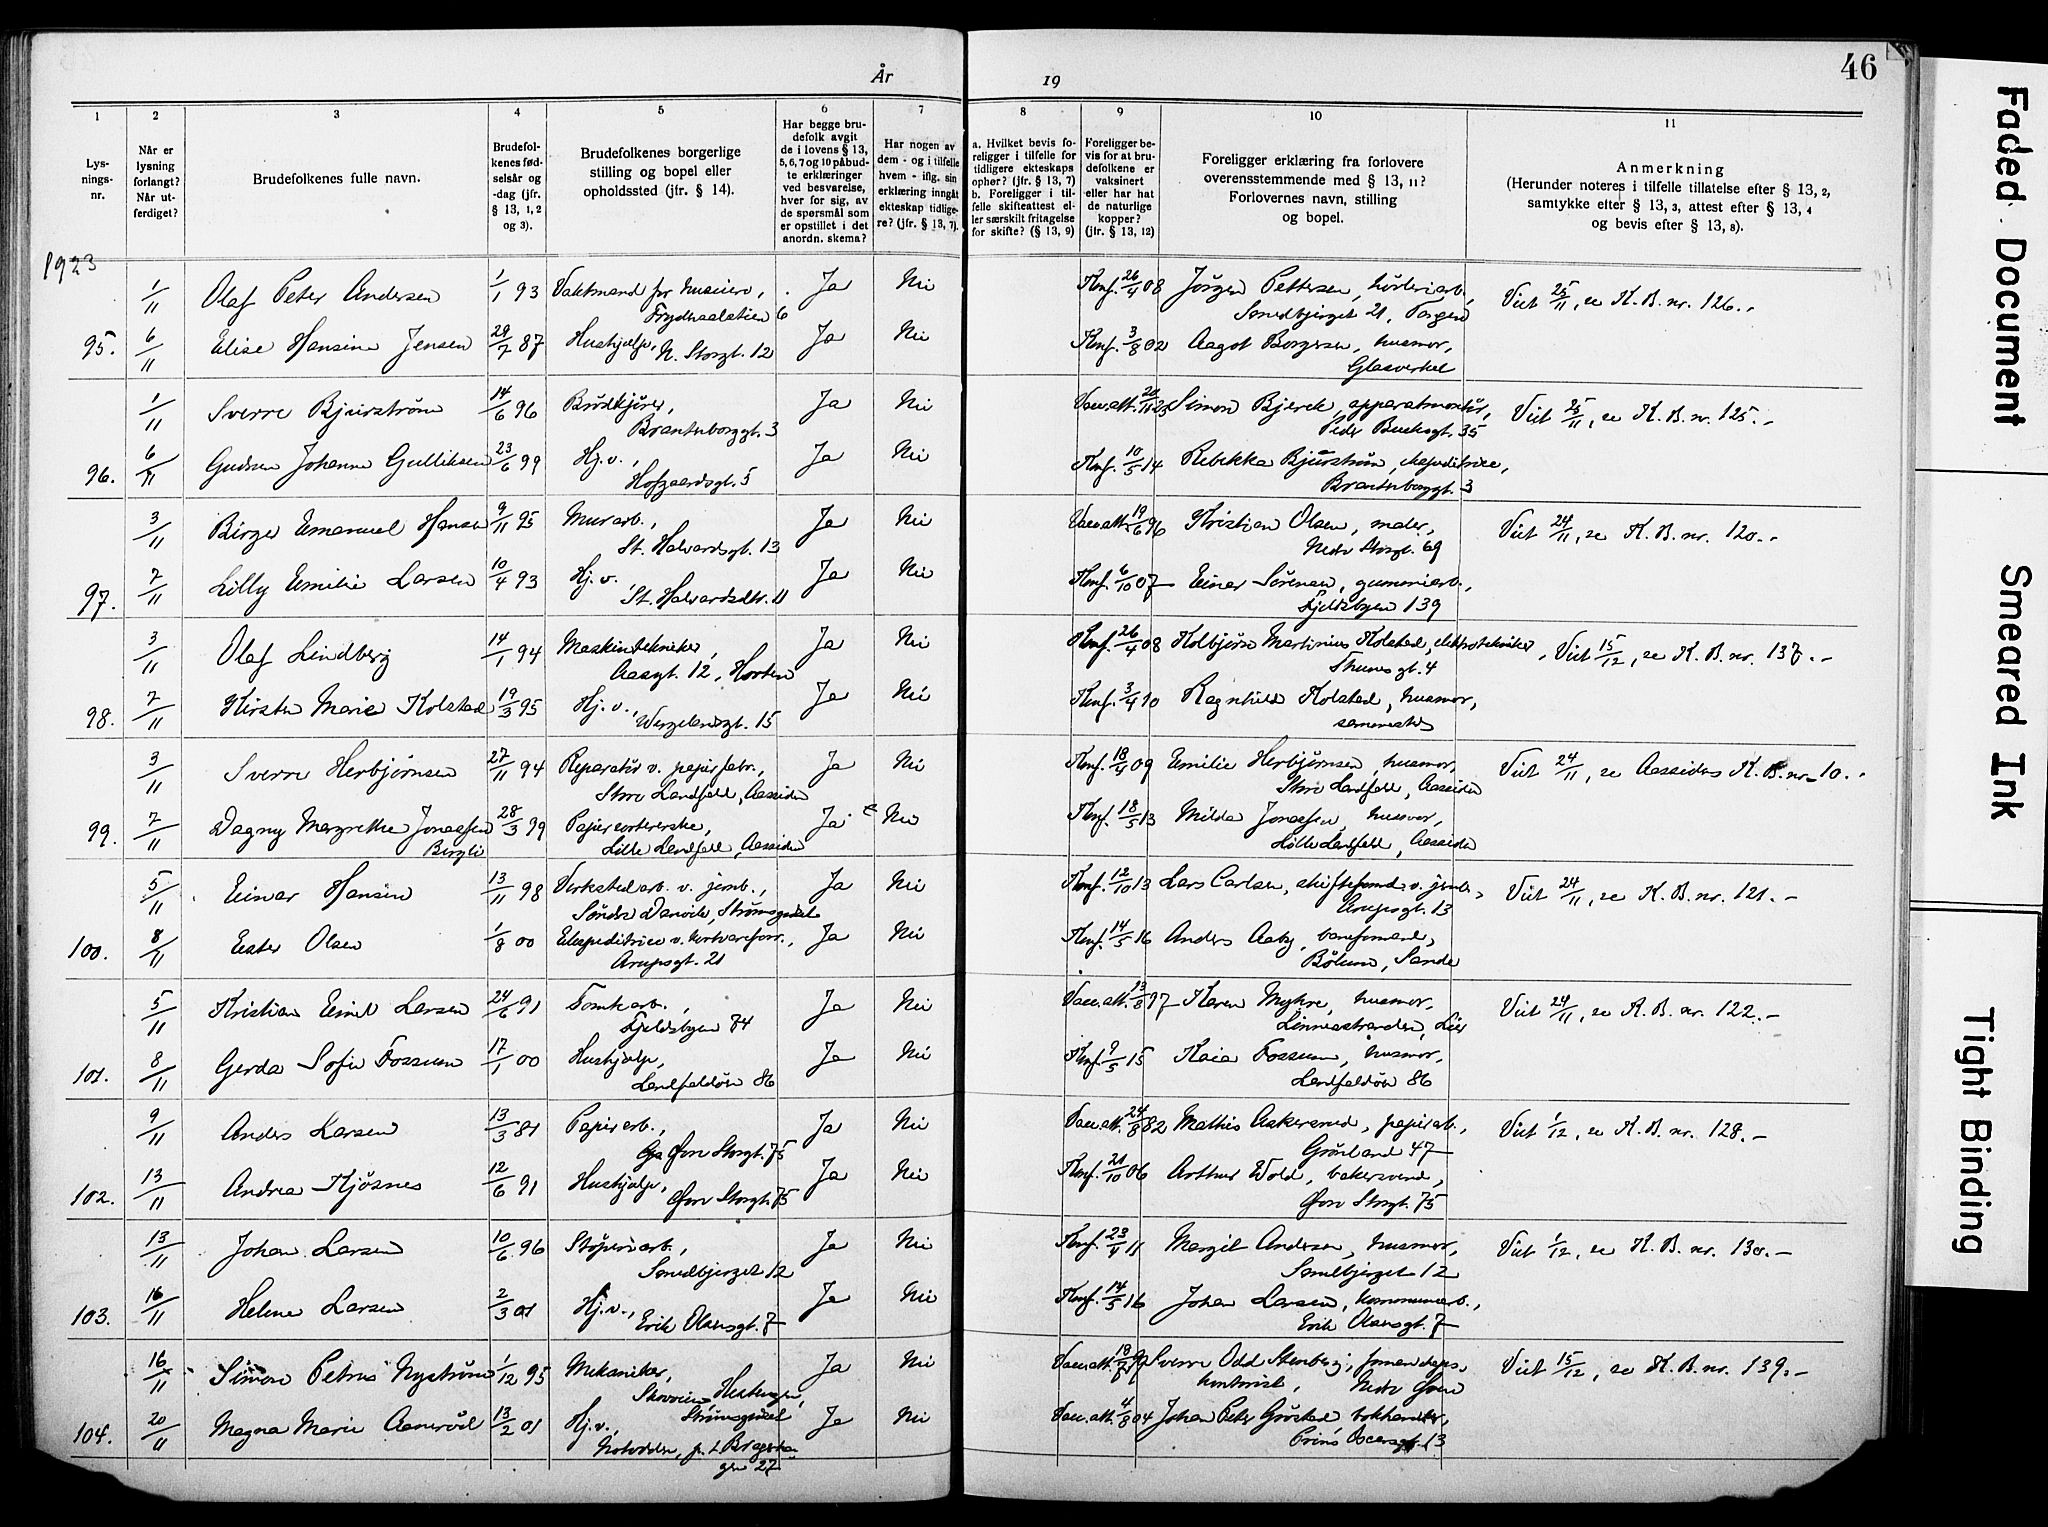 År 19
46
1 2 3 4 5 6 7 8 9 10 11
Lysnings-nr.
Når er lysning forlangt? Når utferdiget?
Brudefolkenes fulle navn.
Brudefolkenes fødselsår og -dag (jfr. § 13, 1, 2 og 3).
Brudefolkenes borgerlige stilling og bopel eller opholdssted (jfr. § 14).
Har begge brudefolk avgit de i lovens § 13, 5, 6, 7 og 10 påbudte erklæringer ved besvarelse, hver for sig, av de spørsmål som er opstillet i det anordn. skema?
Har nogen av dem - og i tilfelle hvem - iflg. sin erklæring inngåt ekteskap tidligere? (jfr. § 13, 7).
a. Hvilket bevis foreligger i tilfelle for tidligere ekteskaps opher? (jfr. § 13, 7) b. Foreligger i tilfelle skifteattest eller særskilt fritagelse for skifte? (§ 13, 9)
Foreligger bevis for at brudefolkene er vaksinert eller har hat de naturlige kopper? (jfr. § 13, 12)
Foreligger erklæring fra forlovere overensstemmende med § 13, 11? Forlovernes navn, stilling og bopel.
Anmerkning (Herunder noteres i tilfelle tillatelse efter § 13, 2, samtykke efter § 13, 3, attest efter § 13, 4 og bevis efter § 13, 8).
1923
1/11 Olaf Peter Andersen 1/1 93 Ja Nei Konf. 26/4 08 Jörgen Pettersen, Viet 25/11, se K.B. nr. 126.-
6 Smedbjerget 21, Torgeir
95. 6/11 Elise Hansine Jensen 29/7 87 Hushjælp, N. Storgt. 12 Ja Nei Konf. 3/8 02 Aagot Borgersen, husmor,
Glasverket
1/11 Sverre Bjurström 14/6 96 Brödkjörer, Ja Nei Vac.att. 20/11 23 Simon Bjerck, apparatmontör, Viet 25/11, se K.B. nr. 125.-
Brantenborggt. 3 Peder Bucksgt. 35
96. 6/11 Gudrun Johanne Gulliksen 23/6 99 Hj.v., Ja Nei Konf. 10/5 14 Rebekka Bjurström, ekspeditrice,
Hofgaardsgt. 5 Brantenborggt. 3
3/11 Birger Emanuel Hansen 9/11 95 Murarb., Ja Nei Vac.att. 19/6 96 Kristian Olsen, maler, Viet 24/11, se K.B. nr. 120.-
St. Halvardsgt. 13 Nedre Storgt. 69
97. 7/11 Lilly Emilie Larsen 10/4 93 Hj.v., Ja Nei Konf. 6/10 07 Einar Sörensen, gummiarb.,
St. Halvardsgt. 11 Fjeldsbyen 139
3/11 Olaf Lindberg 14/1 94 Maskintekniker, Ja Nei Konf. 26/4 08 Kolbjörn Martinius Kolstad, elektrotekniker, Viet 15/12, se K.B. nr. 137.-
Aasgt. 12, Horten Thumsgt. 4
98. 7/11 Kirsten Marie Kolstad 19/3 95 Hj.v., Ja Nei Konf. 3/4 10 Ragnhild Kolstad, husmor,
Wergelandsgt. 15 sammesteds
3/11 Sverre Herbjörnsen 27/11 94 Reparatör v. papirfabr., Ja Nei Konf. 18/4 09 Emilie Herbjörnsen, husmor, Viet 24/11, se Aassidens K.B. nr. 10.-
Store Landfald, Aassiden Store Landfald, Aassiden
99. 7/11 Dagny Margrethe Jonassen 28/3 99 Papirsortererske, Ja Nei Konf. 18/5 13 Milda Jonassen, husmor,
Bergli Lille Landfald, Aassiden Lille Landfald, Aassiden
5/11 Einar Hansen 13/11 98 Verkstedarb. v. jernb., Ja Nei Konf. 12/10 13 Lars Carlsen, skifteformd. v. jernb., Viet 24/11, se K.B. nr. 121.-
Söndre Danvik, Strömsgodset Arupsgt. 13
100. 8/11 Ester Olsen 1/8 00 Ekspeditrice v. kortvareforr., Ja Nei Konf. 14/5 16 Anders Aaby, baneformand,
Arupsgt. 21 Bölum, Sande
5/11 Kristian Emil Larsen 24/6 91 Tomtearb., Ja Nei Vac.att. 13/8 97 Karen Myhre, husmor, Viet 24/11, se K.B. nr. 122.-
Fjeldsbyen 74 Linnesstranden, Lier
101. 8/11 Gerda Sofie Fossum 17/1 00 Hushjælp, Ja Nei Konf. 9/5 15 Kaia Fossum, husmor,
Landfaldöen 86 Landfaldöen 86
9/11 Anders Larsen 13/3 81 Papirarb., Ja Nei Vac.att. 24/8 82 Mathis Aakersrud, papirarb., Viet 1/12, se K.B. nr. 128.-
Övre Storgt. 75 Grönland 47
102. 13/11 Andrea Kjösnes 12/6 91 Hushjælp, Ja Nei Konf. 21/10 06 Arthur Wold, bakersvend,
Övre Storgt. 75 Övre Storgt. 75
13/11 Johan Larsen 10/6 96 Stöperiarb., Ja Nei Konf. 23/4 11 Margit Andersen, husmor, Viet 1/12, se K.B. nr. 130.-
Smedbjerget 12 Smedbjerget 12
103. 16/11 Helene Larsen 2/3 01 Hj.v., Ja Nei Konf. 14/5 16 Johan Larsen, kommunearb.,
Erik Olsensgt. 7 Erik Olsensgt. 7
16/11 Simon Petrus Nyström 1/12 95 Mekaniker, Ja Nei Vac.att. Sverre Odd Stenberg, Viet 15/12, se K.B. nr. 139.-
Strömsgodset kontorist,
104. 20/11 Magna Marie Aamröd 13/2 01 Hj.v., Ja Nei Vac.att. 4/8 04 Johan Peter Gröstad, bokhandler,
Notodden, Prins Oscarsgt. 13
27
Faded Document
Smeared Ink
Tight Binding